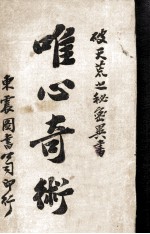 破天荒之秘密異書
唯心奇術
東震圖書公司印行